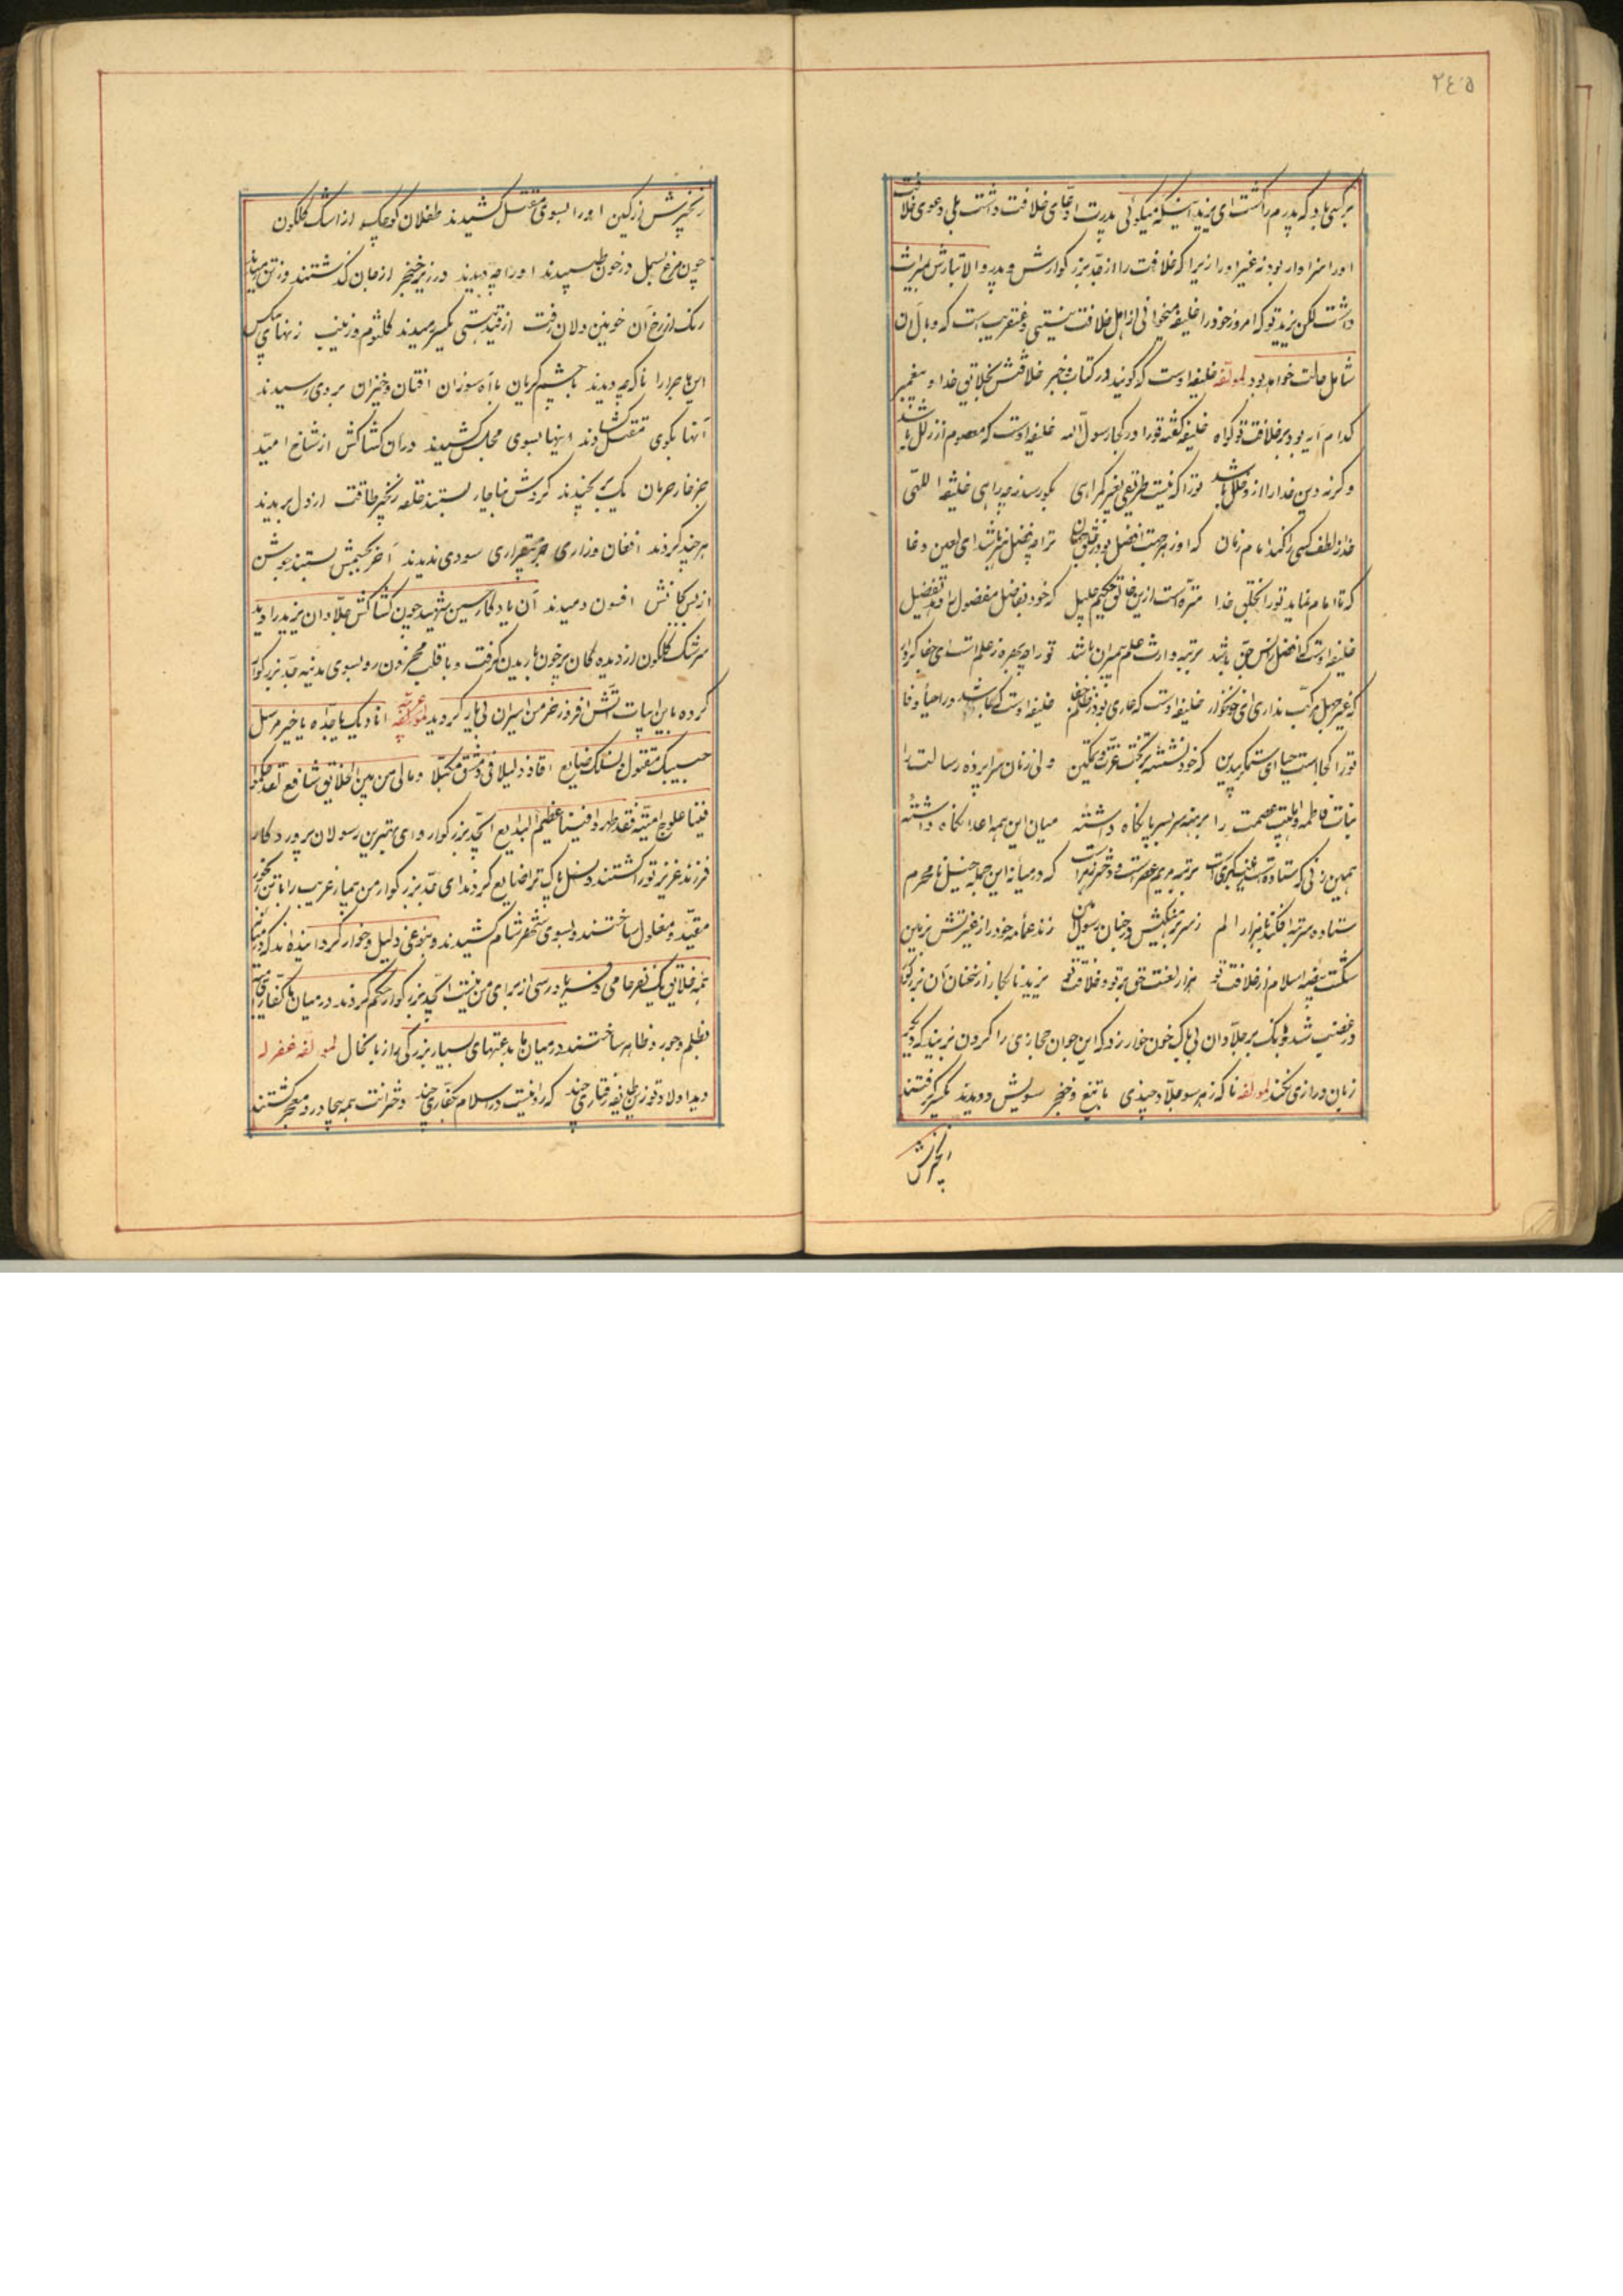 ۲٤۵
بر کسی باد که پدرم را کشت ای یزید اینکه میکوئی پدرت ادعای خلافت داشت بلی دعوی خلافت
او را سزاوار بود نه غیر او را زیرا که خلافت را از جد بزرکوارش و پدر والاتبارش بمیراث
داشت لکن یزید تو که امروز خود را خلیفه میخوانی از اهل خلافت نیستی و عنقریب است که وبال آن
شامل حالت خواهد بود لمؤلفه خلیفه اوست که کویند در کتاب و خبر خلافتش بخلایق خدا و پیغمبر
کدام آیه بود بر خلافت تو کواه خلیفه کفته تو را در کجا رسول اله خلیفه اوست که معصوم از زلل باشد
و کرنه دین خدا را از او خلل باشد تو را که نیست طریقی بغیر کمراهی بکو رسد زچه راهی خلیفة اللهی
خدا ز لطف کسی را کند امام زمان که او ز هر جهت افضل بود ز خلق جهان ترا چه فضل باشد ای لعین دغا
که تا امام نماید تو را بخلق خدا منزه است ازین خالق حکیم جلیل که خود بفاضل مفضول را دهد تفضیل
خلیفه اوست که افضل ز انس و جن باشد برتبه وارث علم پیمبران باشد تو را چه بهره ز علم است ای جفا کردار
که غیر جهل مرکب نداری ای خونخوار خلیفه اوست که عاری بود ز ظلم و جفا خلیفه اوست که باشد در احیا و وفا
تو را کجا است حیا ای ستمکر بیدین که خود نشسته بر تخت عزت و تمکین ولی زنان سراپرده رسالت را
بنات فاطمه و اهلبیت عصمت را برهنه سر بسر پا نکاه داشته میان این همه اعدا نکاه داشته
همین زنی که ستاده است زینب کبری است برتبه مریم عصر است و دختر زهرا است که در میانه این جمله خیل نامحرم
ستاده سر بته افکنده با هزار الم ز سر برهنکیش در جنان رسول امین زند عمامه خود را ز غیرتش بزمین
شکست بیضه اسلام از خلافت تو هزار لعنت حق بر تو و خلافت تو یزید نابکار از سخنان آن بزرکوار
در غضب شد و بانک بر جلادان بی باک خون خوار زد که این جوان حجازی را کردن بزنید که دیکر
زبان درازی نکند لمؤلفه ناکه ز هر سو جلاد چندی با تیغ و خنجر سویش دویدند یکسر کرفتند
زنجیرش
زنجیرش از کین او را بسوی مقتل کشیدند طفلان کوچک از اشک کلکون
چون مرغ بسمل در خون طپیدند او را چه دیدند در زیر خنجر از جان کذشتند وز تن رمیدند
رنک از رخ آن خونین دلان رفت از قید هستی یکسر رمیدند کلثوم و زینب زنهای بیکس
این ماجرا را ناکه چه دیدند با چشم کریان با آه سوزان افتان و خیزان بر وی رسیدند
آنها بکوی مقتل کشادند اینها بسوی مجلس کشیدند در آن کشاکش از شاخ امید
جز خار حرمان یک بر نچیدند کردش بناچار بستند حلقه زنجیر طاقت از دل بریدند
هرچند کردند افغان و زاری جز بیقراری سودی ندیدند آخر بچشم بستند جوشن
از بس بجانش افسون دمیدند آن یادکار حسین شهید چون کشاکش جلادان یزید را دید
سرشک کلکون از دیده کان پر خون باریدن کرفت و با قلب محزون رو بسوی مدینه جد بزرکوار
کرده باین ابیات آتش افروز خرمن اسیران بی یار کردید لمؤلفه انادیک یا جداه یا خیر مرسل
حبیبک مقتول و نسلک ضایع اقاد ذلیلا فی دمشق مکبلا و مالی من بین الخلایق شافع لقد حکموا
فینا علوج امیه فقد ظهروا فینا عظیم البدایع ای جد بزرکوار و ای بهترین رسولان پروردکار
فرزند عزیز تو را کشتند و نسل پاک ترا ضایع کردند ای جد بزرکوار من بیمار غریب را با تن رنجور
مقید و مغلول ساختند و بسوی شهر شام کشیدند و بنوعی ذلیل و خوار کردانیده اند که در میان
همه خلایق یک نفر حامی و فریادرسی از برای من نیست ای جد بزرکوار حکم کردند در میان ما کفار بنی امیه
بظلم و جور و ظاهر ساختند در میان ما بدعتهای بسیار بزرکی را از با نحال لمؤلفه غفر له
دید اولاد تو زین طایفه رفتاری چند که روا نیست در اسلام بکفاری چند دخترانت همه بیچادر و معجر کشتند